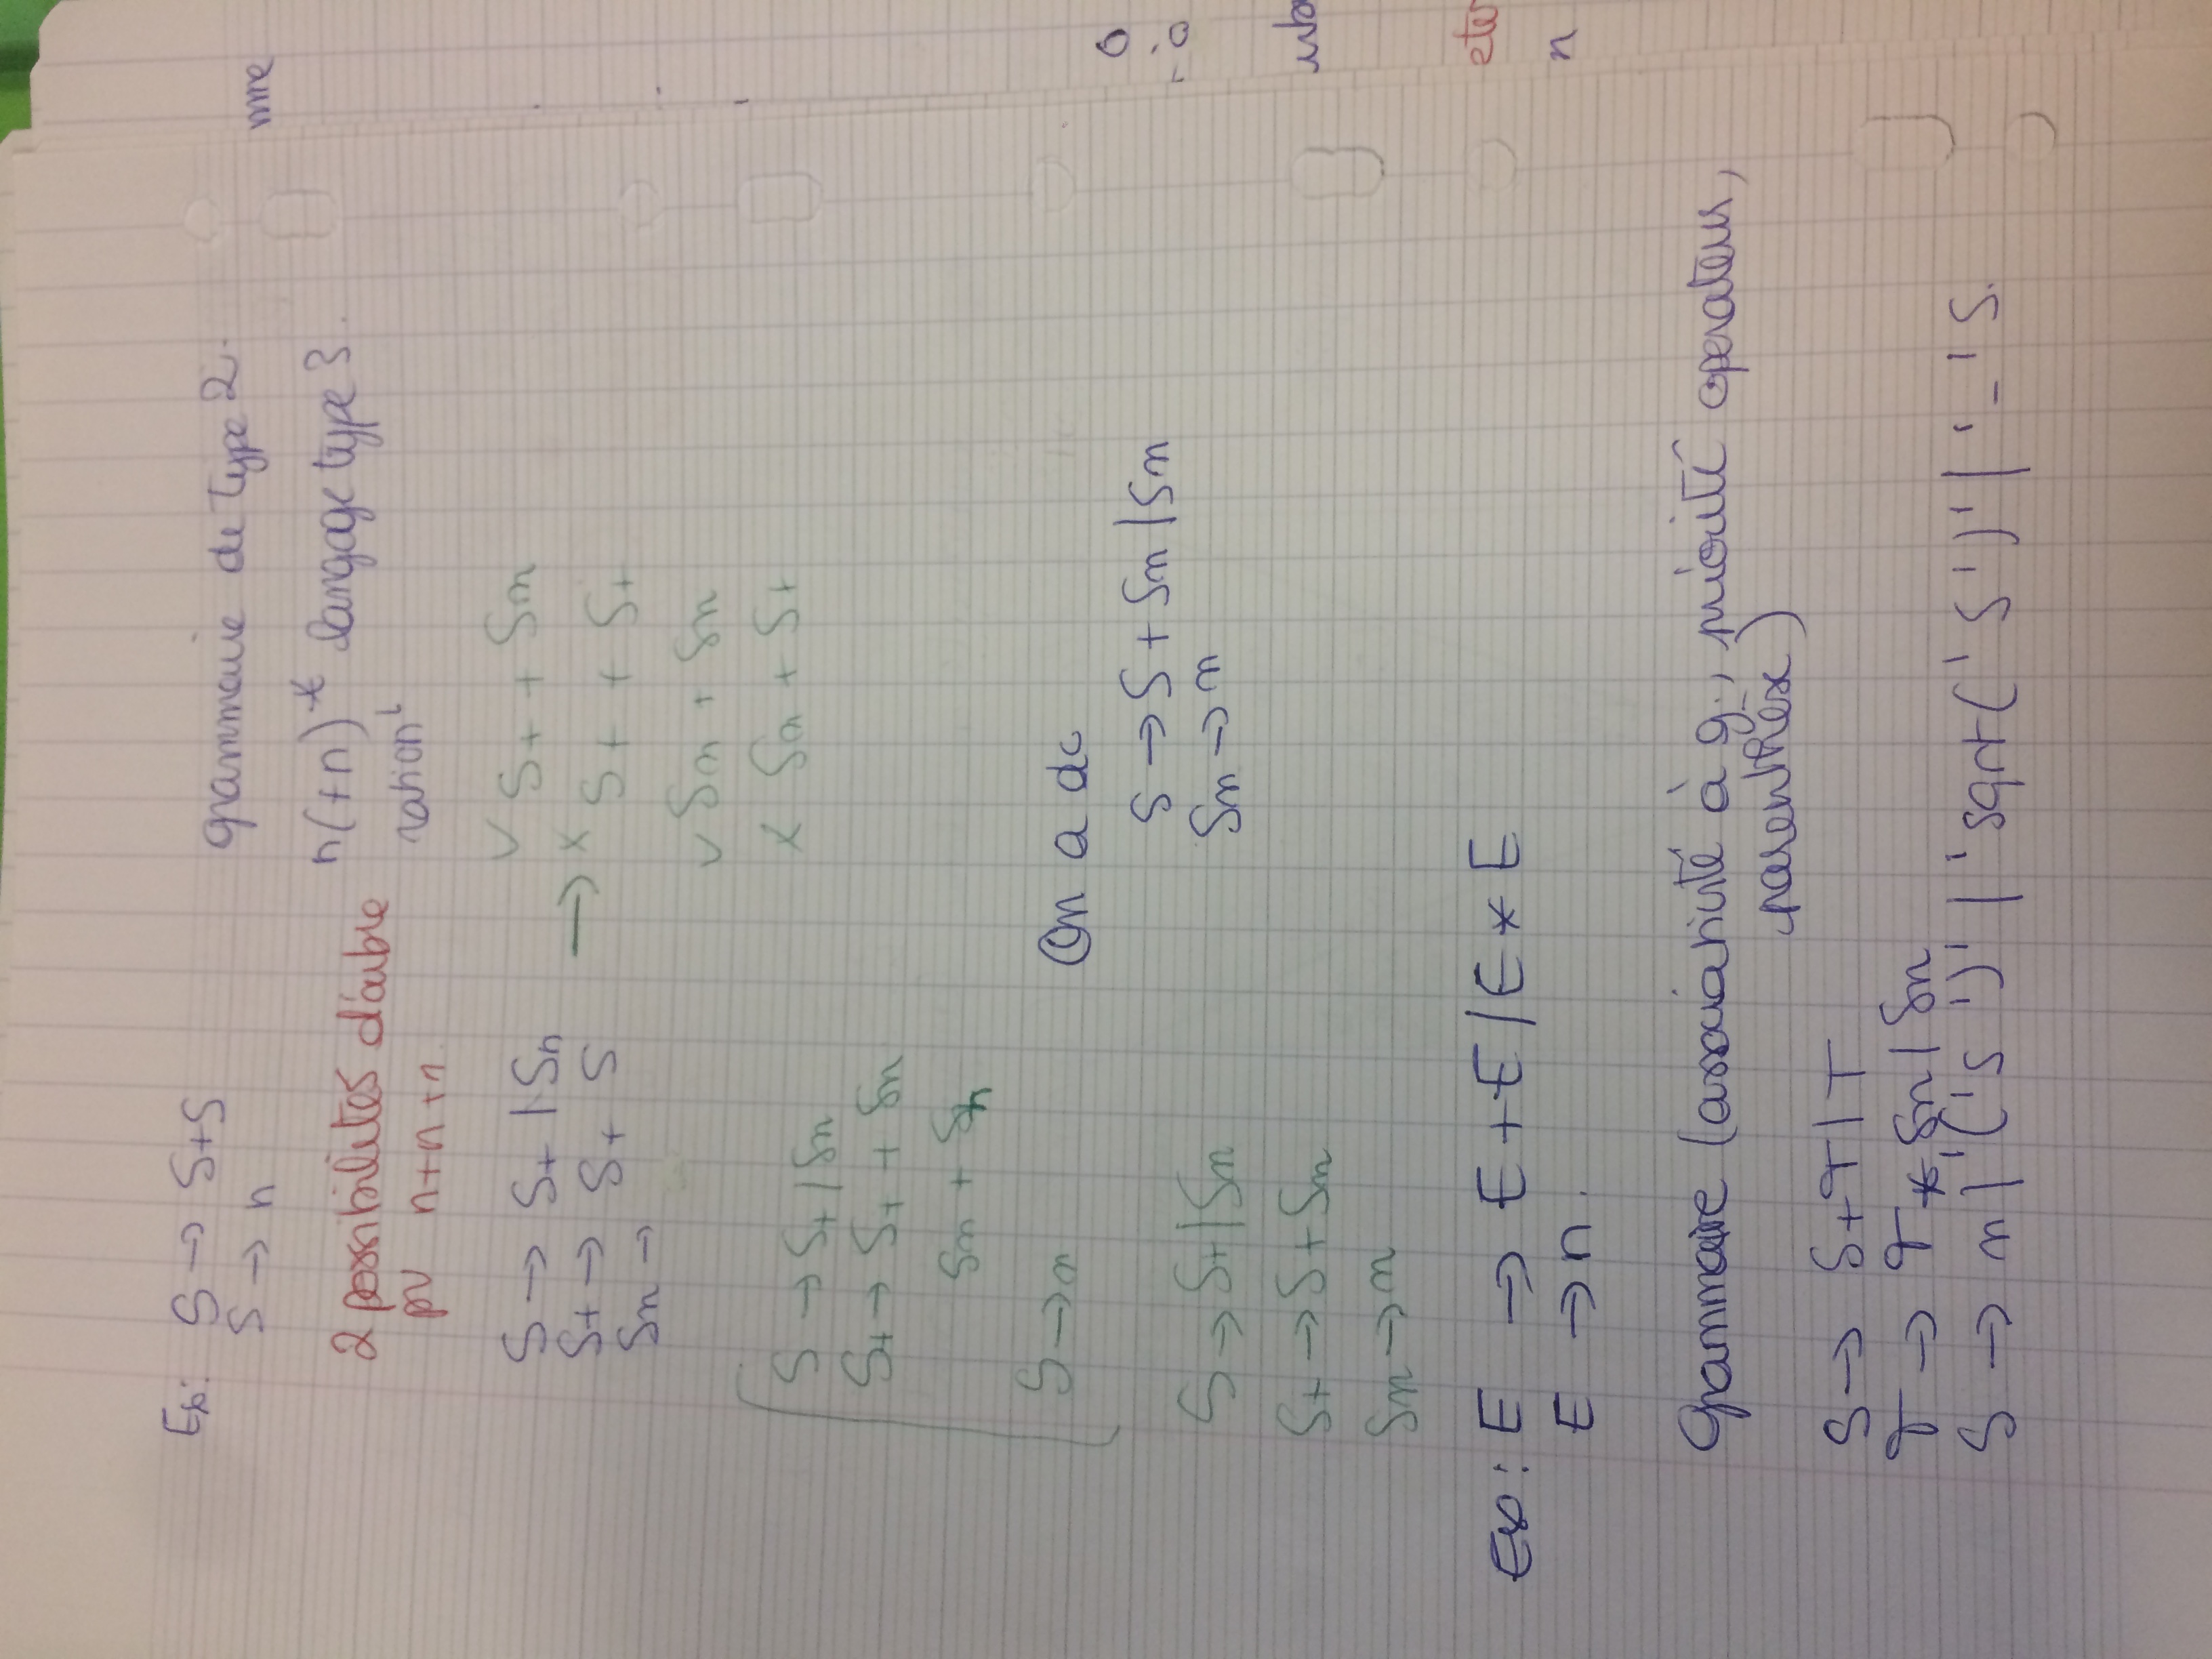 Ex: S → S+S
S → n
grammaire de type 2.
n(+n)* langage type 3.
2 possibilités d'arbre
pr n+n+n
S → S+ | Sn
S+ → S+ S
Sn →
→ ✓ S+ + Sn
x S+ + S+
✓ Sn + Sn
x Sn + S+
S → S+ | Sn
S+ → S+ + Sn
Sn + Sn
S → n
On a dc
S → S + Sn | Sn
Sn → n
S → S+ | Sn
S+ → S + Sn
Sn → n
Ex: E → E + E / E * E
E → n.
Grammaire (associativité à g., priorité operateur,
parenthèse)
S → S+T | T
T → T * Sn | Sn
S → n | '(' S ')' | 'sqrt(' S ')' | '-' S.
mme
o
eter
n